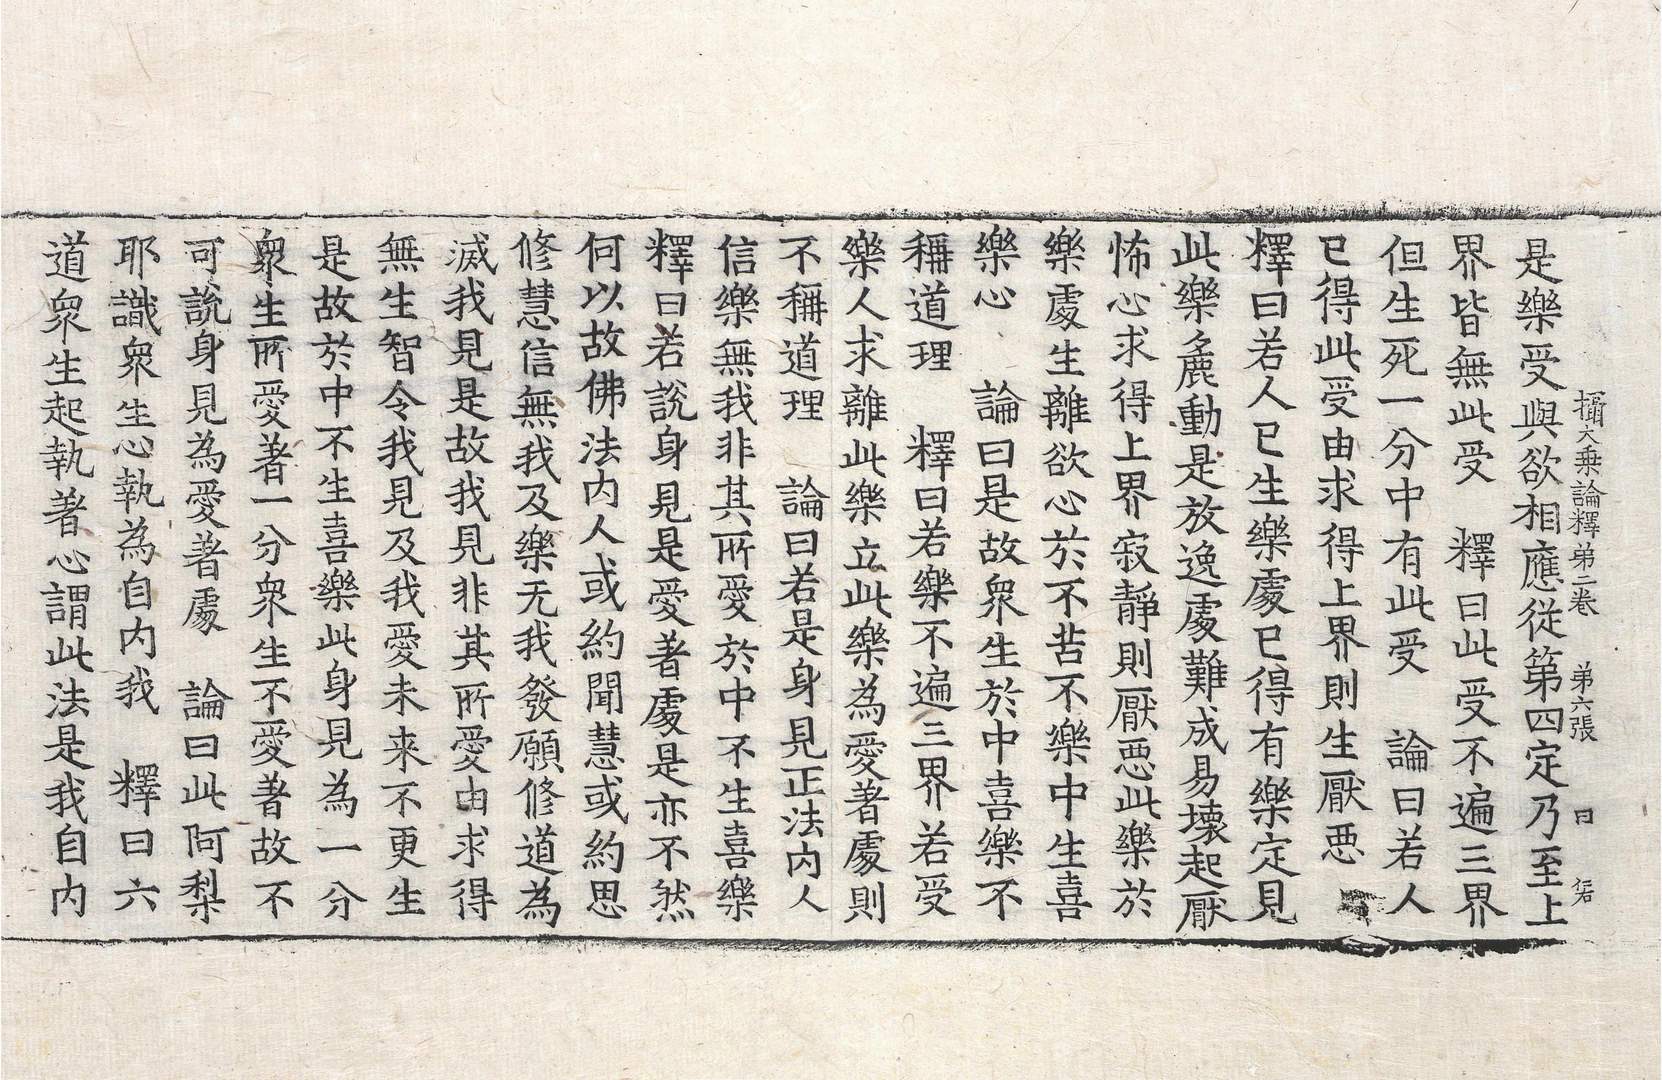 攝大乘論釋弟二卷 弟六張 曰
是樂受與欲相應從第四定乃至上
界皆無此受 釋曰此受不遍三界
但生死一分中有此受 論曰若人
已得此受由求得上界則生厭惡
釋曰若人已生樂處已得有樂定見
此樂麁動是放逸處難成易壞起厭
怖心求得上界寂靜則厭惡此樂於
樂處生離欲心於不苦不樂中生喜
樂心 論曰是故衆生於中喜樂不
稱道理 釋曰若樂不遍三界若受
樂人求離此樂立此樂為愛著處則
不稱道理 論曰若是身見正法内人
信樂無我非其所愛於中不生喜樂
釋曰若說身見是愛著處是亦不然
何以故佛法内人或約聞慧或約思
修慧信無我及樂无我發願修道為
滅我見是故我見非其所愛由求得
無生智令我見及我愛未来不更生
是故於中不生喜樂此身見為一分
衆生所愛著一分衆生不愛著故不
可說身見為愛著處 論曰此阿梨
耶識衆生心執為自内我 釋曰六
道衆生起執著心謂此法是我自内